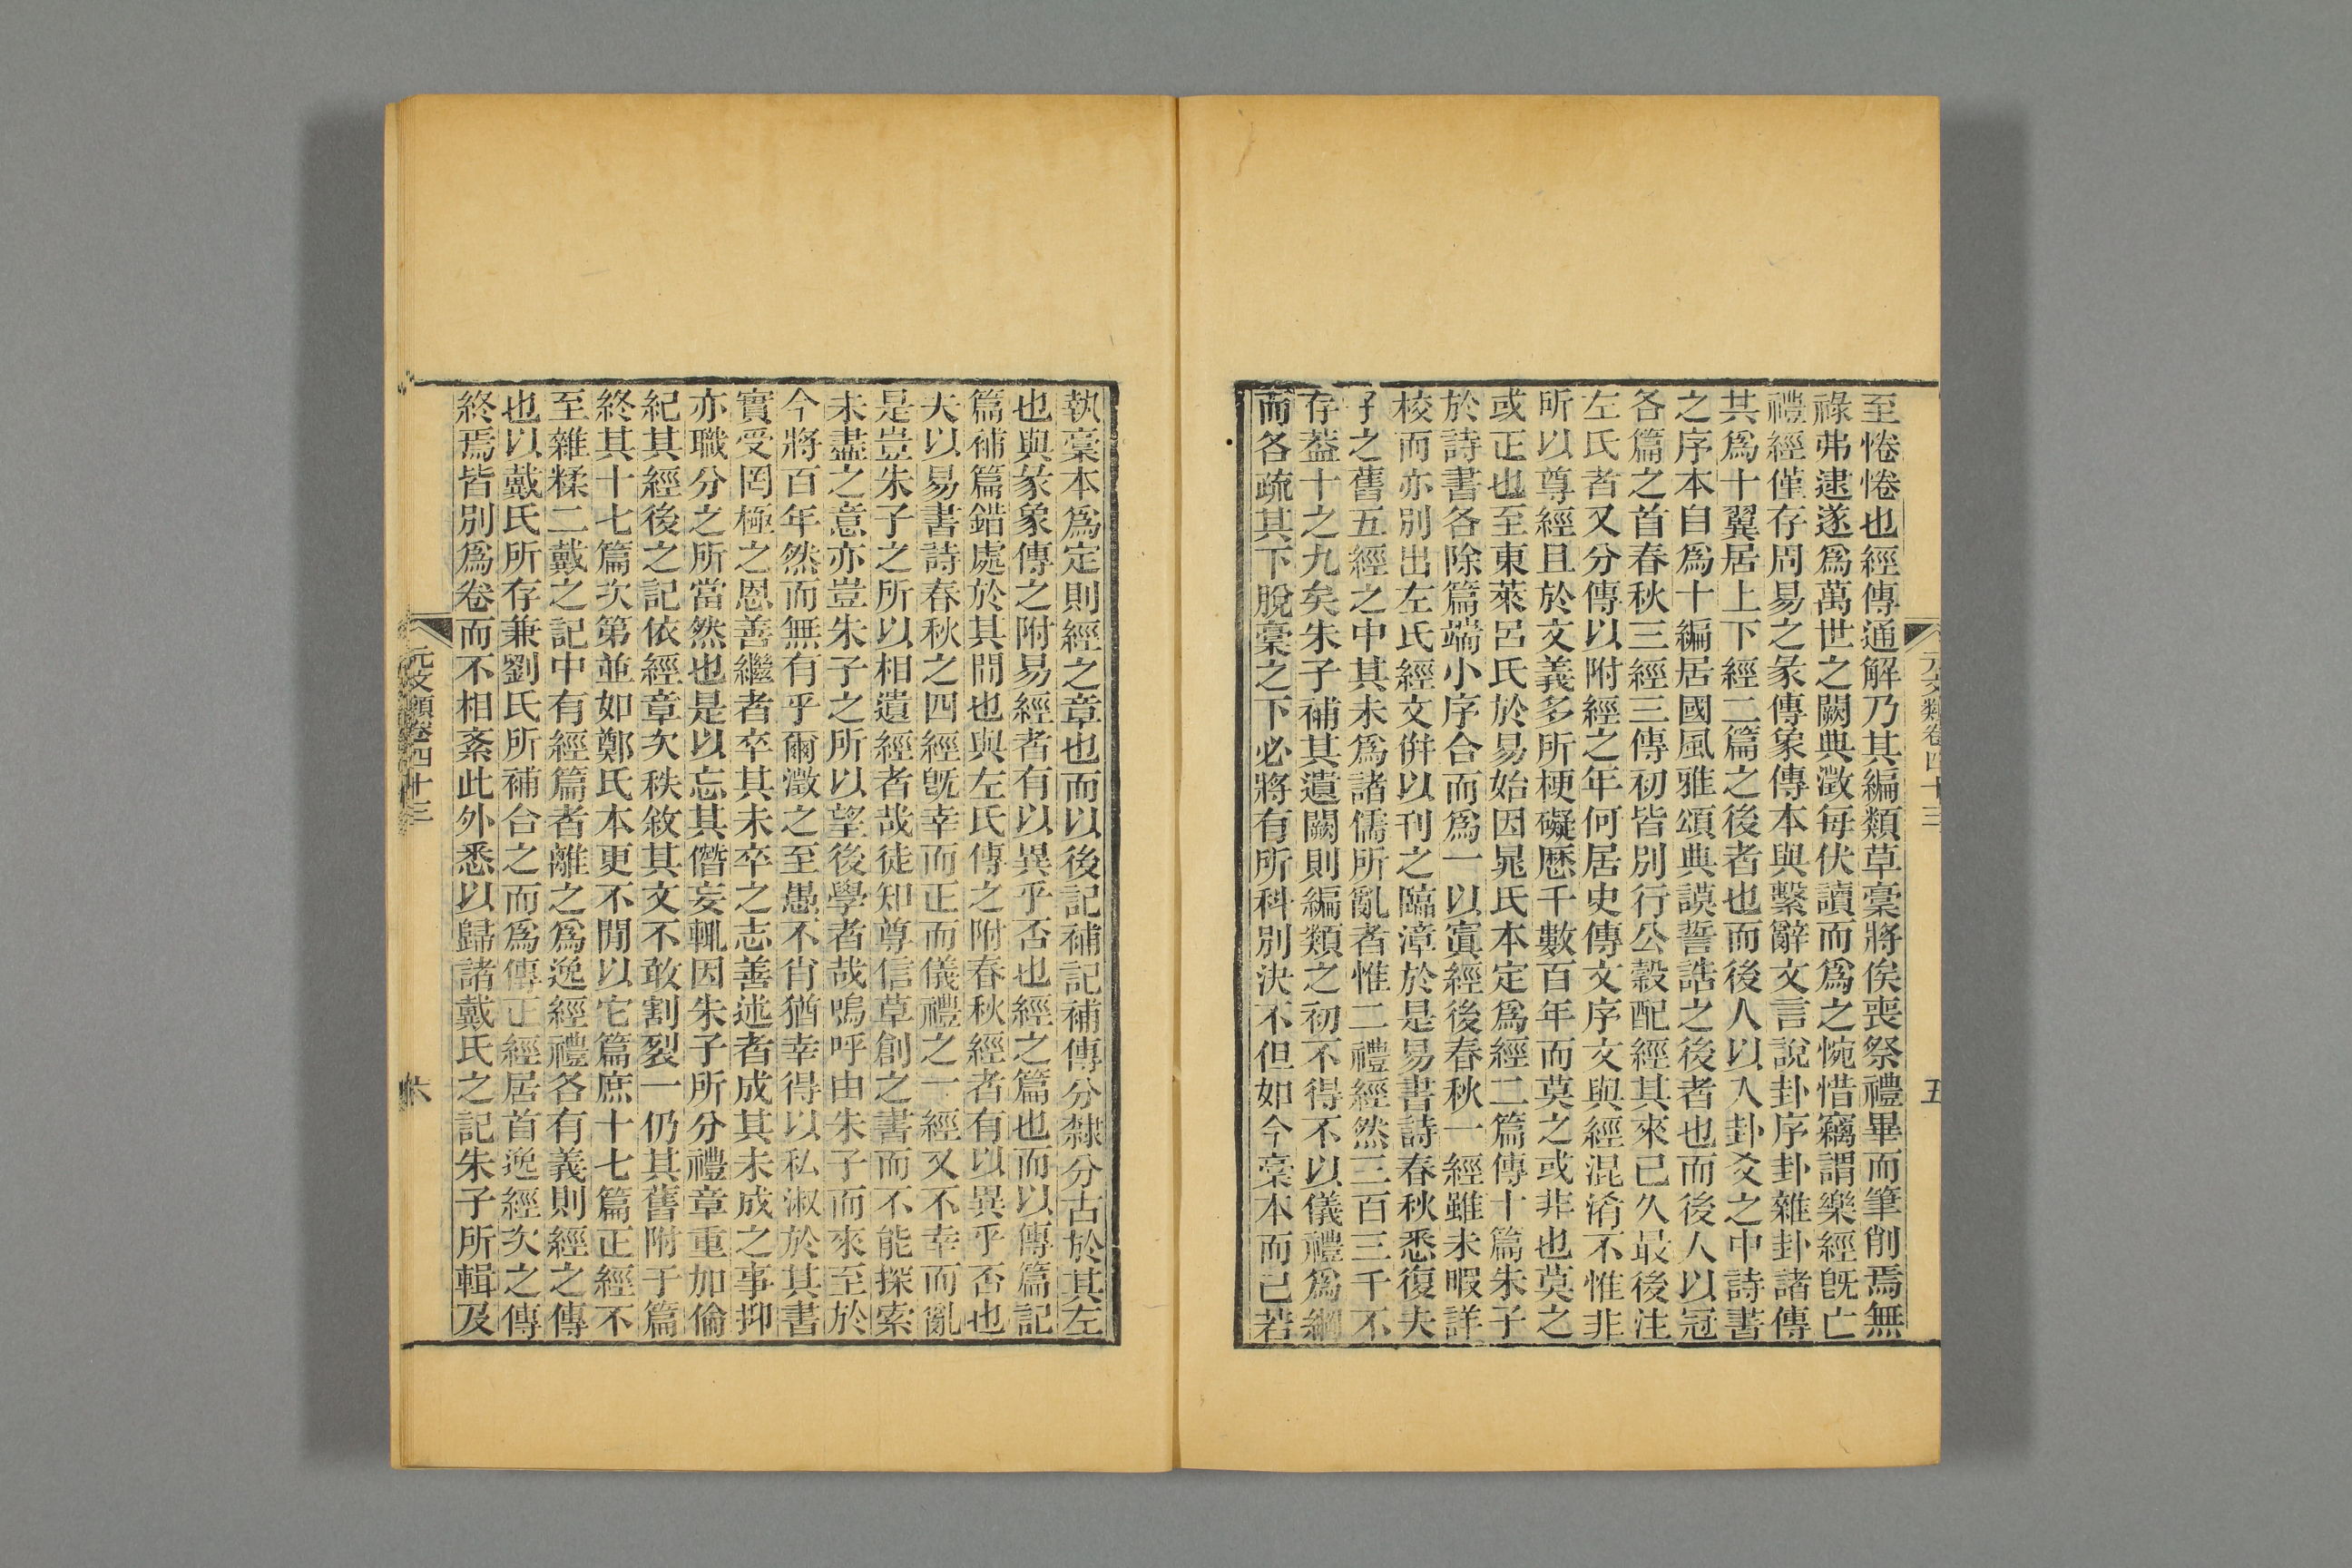 至惓惓也經傳通解乃其編類草稾將俟喪祭禮畢而筆削焉無
祿弗逮遂爲萬世之闕典澂每伏讀而爲之惋惜竊謂樂經旣亡
禮經僅存周易之彖傳象傳本與繫辭文言說卦序卦雜卦諸傳
其爲十翼居上下經二篇之後者也而後人以入卦爻之中詩書
之序本自爲十編居國風雅頌典謨誓誥之後者也而後人以冠
各篇之首春秋三經三傳初皆別行公穀配經其來已久最後注
左氏者又分傳以附經之年何居史傳文序文與經混淆不惟非
所以尊經且於文義多所梗礙歷千數百年而莫之或非也莫之
或正也至東萊呂氏於易始因晁氏本定爲經二篇傳十篇朱子
於詩書各除篇端小序合而爲一以寘經後春秋一經雖未暇詳
校而亦別出左氏經文併以刊之臨漳於是易書詩春秋悉復夫
子之舊五經之中其未爲諸儒所亂者惟二禮經然三百三千不
存葢十之九矣朱子補其遺闕則編類之初不得不以儀禮爲綱
而各疏其下脫稾之下必將有所科別決不但如今稾本而已若
元文類卷四十三
五
執稾本爲定則經之章也而以後記補記補傳分隸分古於其左
也與彖象傳之附易經者有以異乎否也經之篇也而以傳篇記
篇補篇錯處於其閒也與左氏傳之附春秋經者有以異乎否也
夫以易書詩春秋之四經旣幸而正而儀禮之一經又不幸而亂
是豈朱子之所以相遺經者哉徒知尊信草創之書而不能探索
未盡之意亦豈朱子之所以望後學者哉嗚呼由朱子而來至於
今將百年然而無有乎爾澂之至愚不肖猶幸得以私淑於其書
實受罔極之恩善繼者卒其未卒之志善述者成其未成之事抑
亦職分之所當然也是以忘其僭妄輒因朱子所分禮章重加倫
紀其經後之記依經章次秩敘其文不敢割裂一仍其舊附于篇
終其十七篇次第並如鄭氏本更不閒以它篇庶十七篇正經不
至雜糅二戴之記中有經篇者離之爲逸經禮各有義則經之傳
也以戴氏所存兼劉氏所補合之而爲傳正經居首逸經次之傳
終焉皆別爲卷而不相紊此外悉以歸諸戴氏之記朱子所輯及
元文類卷四十三
六